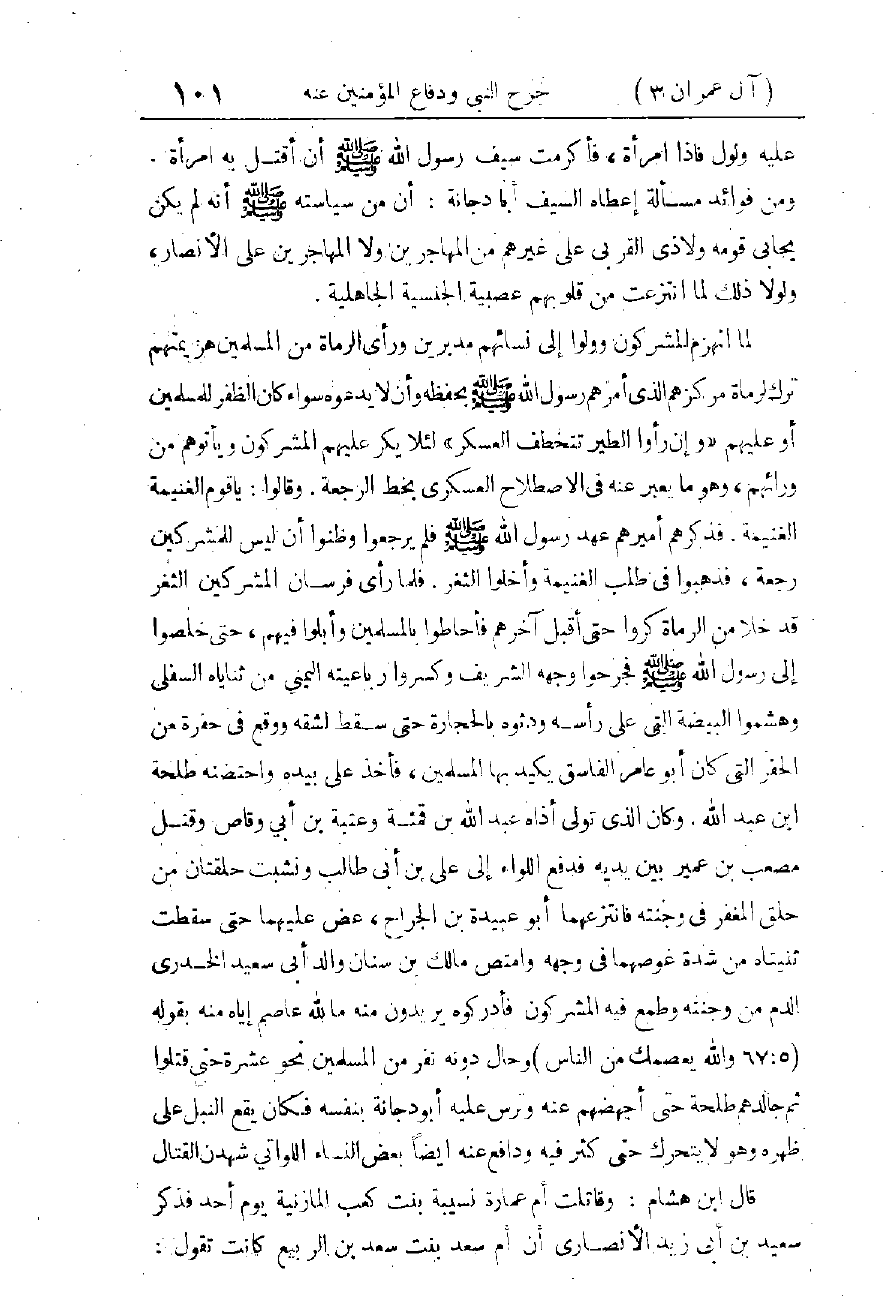 (آل عمران ٣) جرح النبي ودفاع المؤمنين عنه ١٠١
عليه ولول فاذا امرأة ، فأكرمت سيف رسول الله ﷺ أن أقتــل به امرأة .
ومن فوائد مسـألة إعطاه السيف أبا دجانة : أن من سياسته ﷺ أنه لم يكن
يحابى قومه ولاذى القربى على غيرهم من المهاجرين ولا المهاجرين على الأنصار،
ولولا ذلك لما انتزعت من قلوبهم عصبية الجنسية الجاهلية .
لما انهزم المشركون وولوا إلى نسائهم مدبرين ورأى الرماة من المسلمين هزيمتهم
ترك الرماة مركزهم الذى أمرهم رسول الله ﷺ بحفظه وأن لا يدعوه سواء كان الظفر للمسلمين
أو عليهم «وإن رأوا الطير تتخطف العسكر» لئلا يكر عليهم المشركون ويأتوهم من
ورائهم ، وهو ما يعبر عنه فى الاصطلاح العسكرى بخط الرجعة . وقالوا : ياقوم الغنيمة
الغنيمة . فذكرهم أميرهم عهد رسول الله ﷺ فلم يرجعوا وظنوا أن ليس للمشركين
رجعة ، فذهبوا فى طلب الغنيمة وأخلوا الثغر . فلما رأى فرسـان المشركين الثغر
قد خلا من الرماة كروا حتى أقبل آخرهم فأحاطوا بالمسلمين وأبلوا فيهم ، حتى خلصوا
إلى رسول الله ﷺ فجرحوا وجهه الشريف وكسروا رباعيته اليمنى من ثناياه السفلى
وهشموا البيضة التى على رأسـه ودثوه بالحجارة حتى سـقط لشقه ووقع فى حفرة من
الحفر التى كان أبو عامر الفاسق يكيد بها المسلمين ، فأخذ على بيده واحتضنه طلحة
ابن عبد الله . وكان الذى تولى أذاه عبد الله بن قمئـة وعتبة بن أبي وقاص وقتـل
مصعب بن عمير بين يديه فدفع اللواء إلى على بن أبى طالب ونشبت حلقتان من
حلق المغفر فى وجنته فانتزعهما أبو عبيدة بن الجراح ، عض عليهما حتى سقطت
ثنيتاه من شدة غوصهما فى وجهه وامتص مالك بن سنان والد أبى سعيد الخـدرى
الدم من وجنته وطمع فيه المشركون فأدركوه يريدون منه ما لله عاصم إياه منه بقوله
(٦٧:٥ والله يعصمك من الناس ) وحال دونه نفر من المسلمين نحو عشرة حتى قتلوا
ثم جالدهم طلحة حتى أجهضهم عنه وترس عليه أبو دجانة بنفسه فـكان يقع النبل على
ظهره وهو لا يتحرك حتى كثر فيه ودافع عنه ايضاً بعض النساء اللواتي شهدن القتال
قال ابن هشام : وقاتلت أم عمارة نسيبة بنت كعب المازنية يوم أحد فذكر
سعيد بن أبى زيد الأنصـارى أن أم سعد بنت سعد بن الربيع كانت تقول :